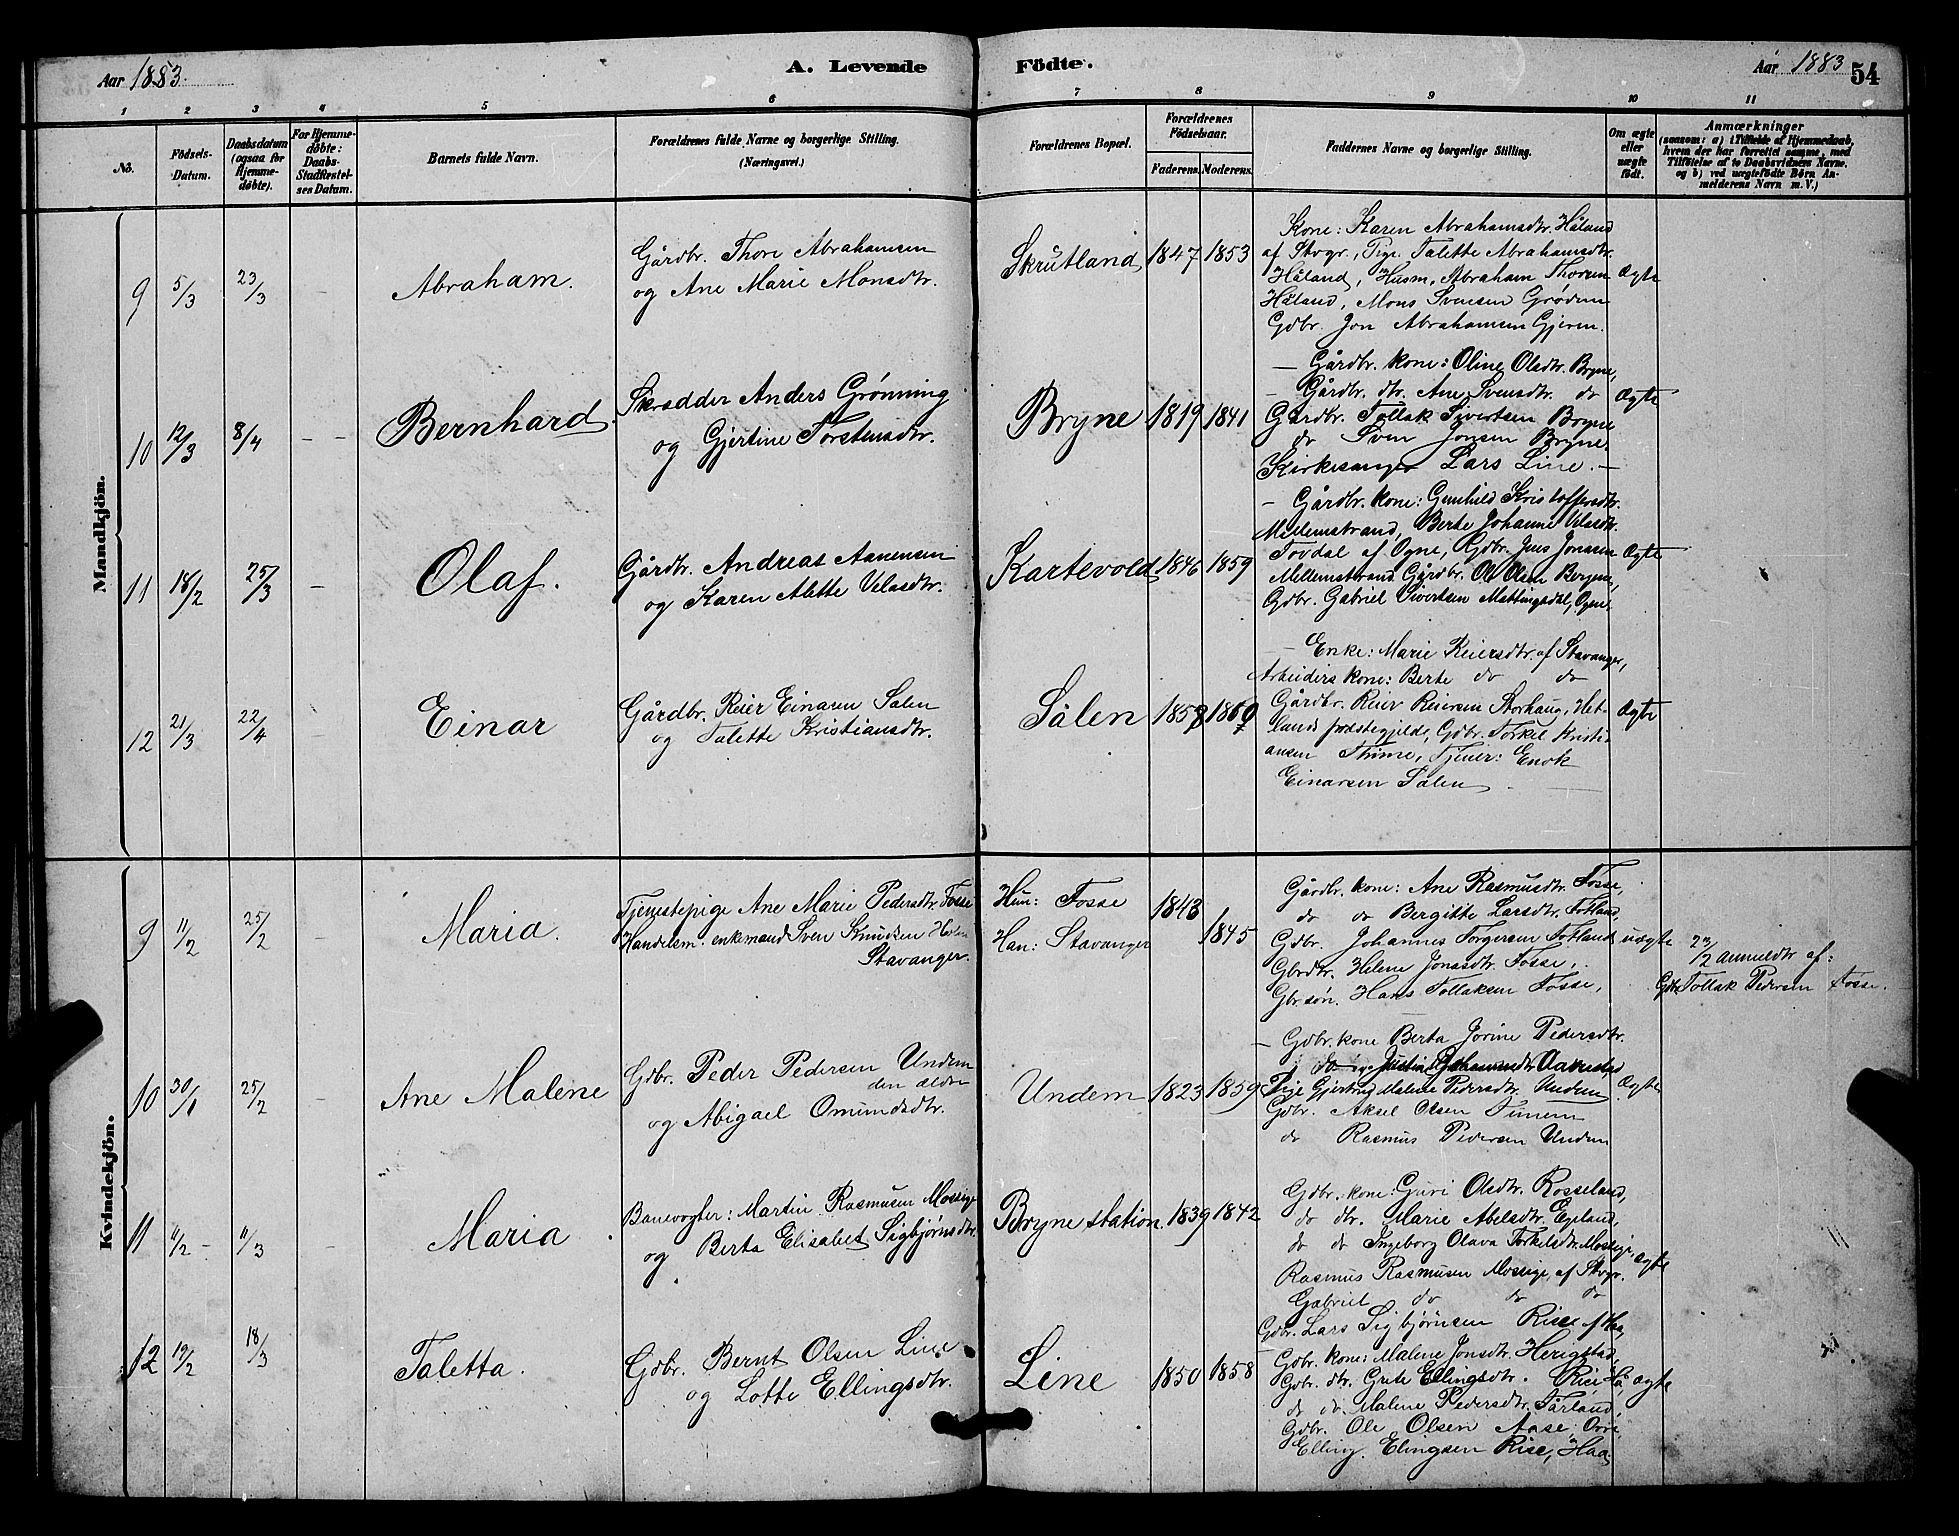 Aar 1883.
A. Levende Födte.
Aar 1883 54
1 2 3 4 5 6 7 8 9 10 11
No.
Födsels-Datum.
Daabsdatum (ogsaa for Hjemme-döbte).
For Hjemme-döbte: Daabs-Stadfæstel-ses Datum.
Barnets fulde Navn.
Forældrenes fulde Navne og borgerlige Stilling. (Næringsvei.)
Forældrenes Bopæl.
Forældrenes Födselsaar.
Faderens. Moderens.
Faddernes Navne og borgerlige Stilling.
Om ægte eller uægte födt.
Anmærkninger
(saasom: a) i Tilfælde af Hjemmedaab, hvem der har forrettet samme, med Tilföielse af to Daabsvidners Navne. og b) ved uægtefödte Börn An-melderens Navn m. V.)
Mandkjön.
9 5/3 23/3 –
Abraham.
Gårdbr. Thore Abrahamsen
og Ane Marie Monsdtr.
Skrutland 1847 1853
Kone: Karen Abrahamsdtr. Håland
af Stvgr., Pige Talette Abrahamsdtr.
Håland, Husm. Abraham Thorsen
Håland, Mons Svensen Grødem
Gdbr. Jon Abrahamsen Gjeren.
Ægte
10 12/3 8/4 – –
Bernhard.
Skrædder Anders Grønning
og Gjertine Torstensdtr.
Bryne 1819 1841
– Gårdbr. kone: Oline Olsdtr. Bryne,
– Gårdbr. dtr. Ane Svensdtr. do
Gårdbr. Tollak Sivertsen Bryne
do Sven Jonsen Bryne.
Kirkesanger Lars Line. –
Ægte
11 18/2 25/3 –
Olaf.
Gårdbr. Andreas Aanensen
og Karen Alette Velasdtr.
Kartevold 1846 1859
– Gårdbr. kone: Gunhild Kristoffersdtr.
Mellemstrand, Berte Johanne Velasdtr.
Tovdal af Ogne, Gdbr. Jens Jonasen
Mellemstrand, Gårdbr. Ole Olsen Bergem,
Gdbr. Gabriel Sivertsen Mattingsdal, Ogne.
Ægte
12 21/3 22/4
Einar
Gårdbr. Reier Einarsen Salen
og Talette Kristiansdtr.
Sålen
– Enke: Marie Reiersdtr. af Stavanger,
Arbeiders kone: Berte do do
Gårdbr. Reier Reiersen Storhaug, Het-
lands præstegjelde, Gdbr. Torkel Kristi-
ansen Thime, Tjener: Enok
Einarsen Salen
Ægte
Kvindekjön.
9 11/2 25/2 –
Maria.
Tjenestepige Ane Marie Pedersdtr. Fosse
Handelsm. enkemand Sven Knudsen
Stavanger.
Hun: Fosse 1843
Han: Stavanger 1845
Gårdbr. kone: Ane Rasmusdtr. Fosse,
do do Bergitte Larsdtr. Fotland,
Gdbr. Johannes Torgersen Fotland
Gbrdtr. Helene Jonasdtr. Fosse,
Gbrsön. Hans Tollaksen Fosse,
uægte
23/2 anmeldtr af:
Gdbr. Tollak Pedersen Fosse.
10 30/1 25/2 –
Ane Malene
Gdbr. Peder Pedersen Undem
den ældre
og Abigael Omundsdtr.
Undem 1823 1859
– Gdbr. kone Berta Jorine Pedersdtr.
Pige Gjertrug Malene Pedersdtr. Undem
Gdbr. Aksel Olsen Tunem
do Rasmus Pedersen Undem
Ægte
11 11/2 – 11/3
Maria
Banevogter: Martin Rasmusen Mossige
og Berta Elisabet Sigbjørnsdtr.
Bryne station 1839 1842
Gdbr. kone: Guri Olsdtr. Rosseland,
do dtr. Marie Abelsdtr. Egeland,
do do Ingeborg Olava Torkelsdtr. Mossige,
Rasmus Rasmusen Mossige, af Stvgr.
Gabriel do do do
Gdbr. Lars Sigbjørnsen Rise
ægte
12 19/2 18/3
Taletta.
Gdbr. Bernt Olsen Line
og Lotte Ellingsdtr.
Line 1850 1858
Gdbr. kone: Malene Jonsdtr. Herigstad,
Gdbr. dtr. Grete Ellingsdtr. Rise Hå
do do Malene Pedersdtr. Tårland,
Gdbr. Ole Olsen Aase, Orre,
Elling Elingsen Rise, Haa
ægte